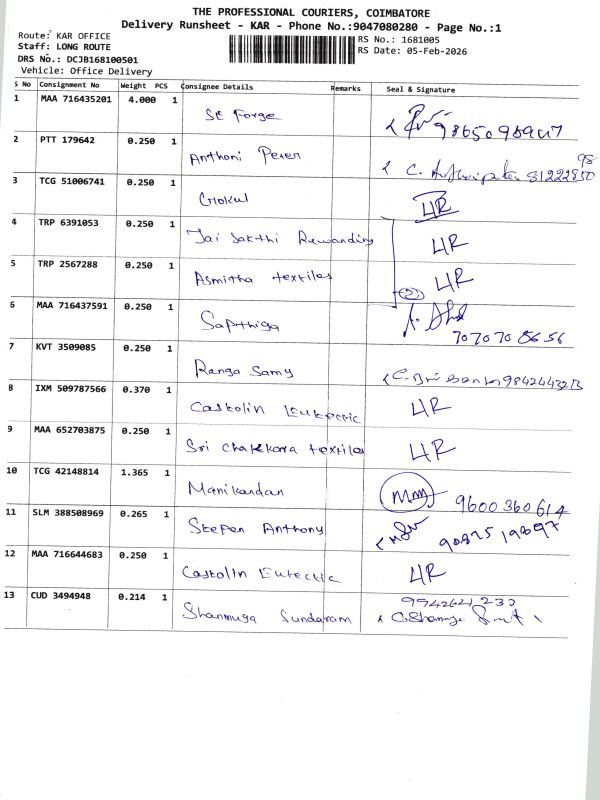 THE PROFESSIONAL COURIERS, COIMBATORE
Delivery Runsheet - KAR - Phone No.:9047080280 - Page No.:1
Route: KAR OFFICE
Staff: LONG ROUTE
DRS No.: DCJB168100501
Vehicle: Office Delivery
RS No.: 1681005
RS Date: 05-Feb-2026
S No Consignment No Weight PCS Consignee Details Remarks Seal & Signature
1 MAA 716435201 4.000 1 St Forge
2 PTT 179642 0.250 1 Anthoni Peter
3 TCG 51006741 0.250 1 Gokul 4R
4 TRP 6391053 0.250 1 Jai Sakthi Rewanding 4R
5 TRP 2567288 0.250 1 Asmitha textiles 4R
6 MAA 716437591 0.250 1 Sapthiga 7070 70 8656
7 KVT 3509085 0.250 1 Ranga Samy
8 IXM 509787566 0.370 1 Castolin Eutectic 4R
9 MAA 652703875 0.250 1 Sri Chakkora textiles 4R
10 TCG 42148814 1.365 1 Manikandan 9600 360 614
11 SLM 388508969 0.265 1 Stepen Anthony
12 MAA 716644683 0.250 1 Castolin Eutectic 4R
13 CUD 3494948 0.214 1 Shanmuga Sundaram